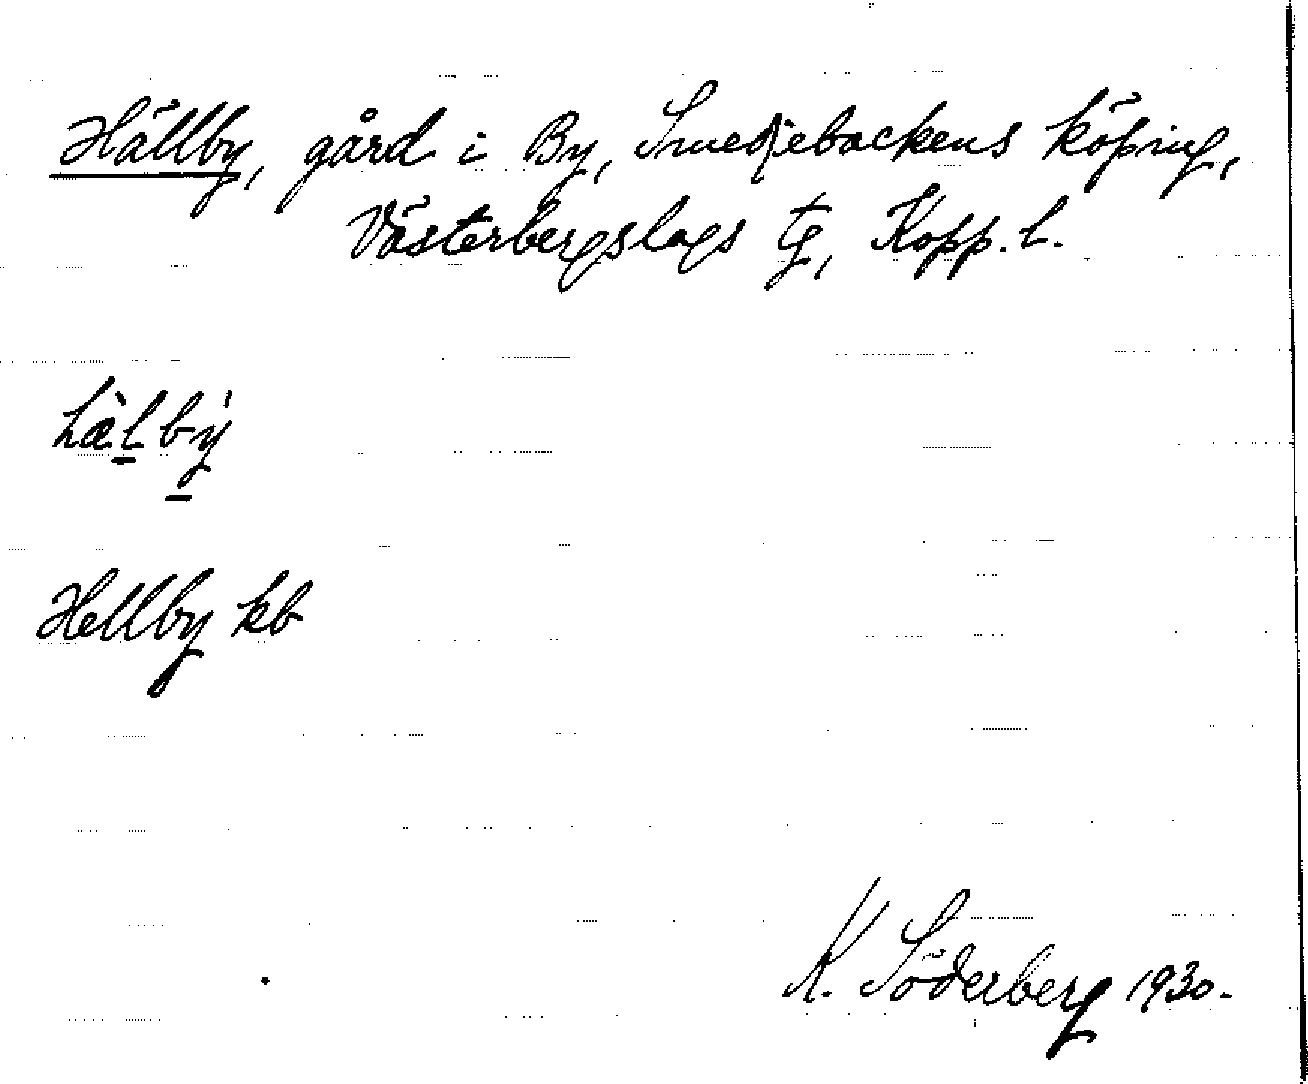 Hällby, gård i By, Smedjebackens köping,
Västerbergslags tg, Kopp. l.
hæ̀lbý
Hellby kb
K. Söderberg 1930.